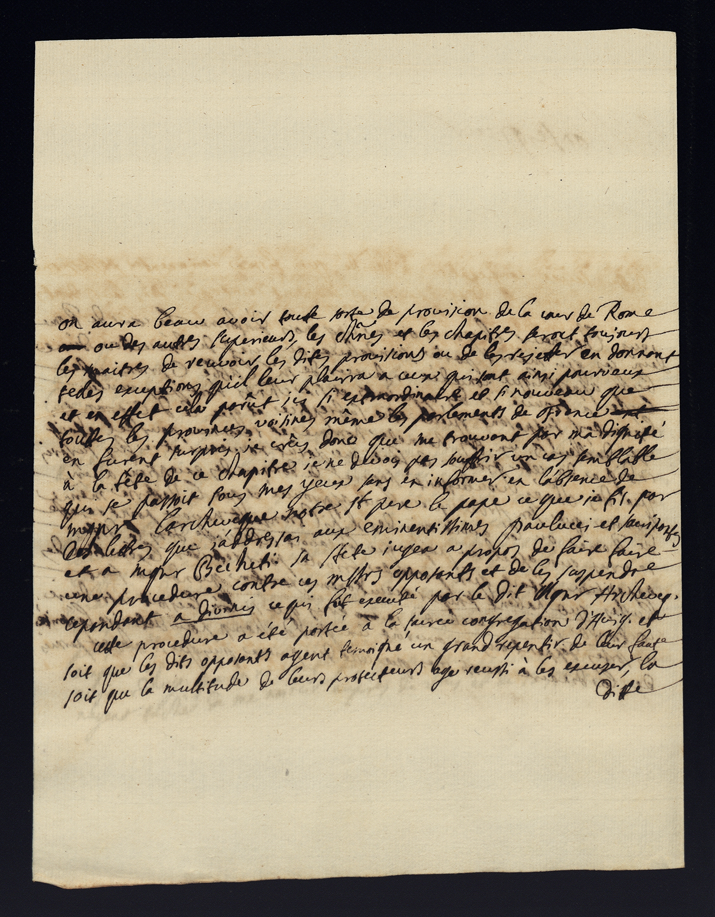 on aura beau avoir toute sorte de provision de la cour de Rome
ou des autres superieurs, les chñes et les chapitres seront toujours
les maitres de recevoir les dites provisions ou de les rejetter en donnant
telles exceptions qu'il leur plaira a ceux qui sont ainsi pourveus
et en effet cela parût icy si extraordinaire et si nouveau que
touttes les provinces voisines même les parlements de france
en furent surpris, je crûs donc que me trouvant par ma dignité
à la tête de ce chapitre je ne devois pas souffrir un cas semblable
qui se passoit sous mes yeux sans en informer en l'absence de
mõnr l'archevesque notre st pere le pape ce que je fis par
des lettres que j'addressai aux eminentissimes paulucci et
et a monsr Bichi. sa steté jugea a propos de faire faire
une procedure contre ces messrs opposants et de les suspendre
cependant a divinis ce qui fût executé par le dit monsr Archeveq.
cette procedure a été portée à la sacrée congregation d'Avig. et
soit que les dits opposants ayent temoigné un grand repentir de leur faute
soit que la multitude de leurs protecteurs aye reussi à les excuser, la
ditte